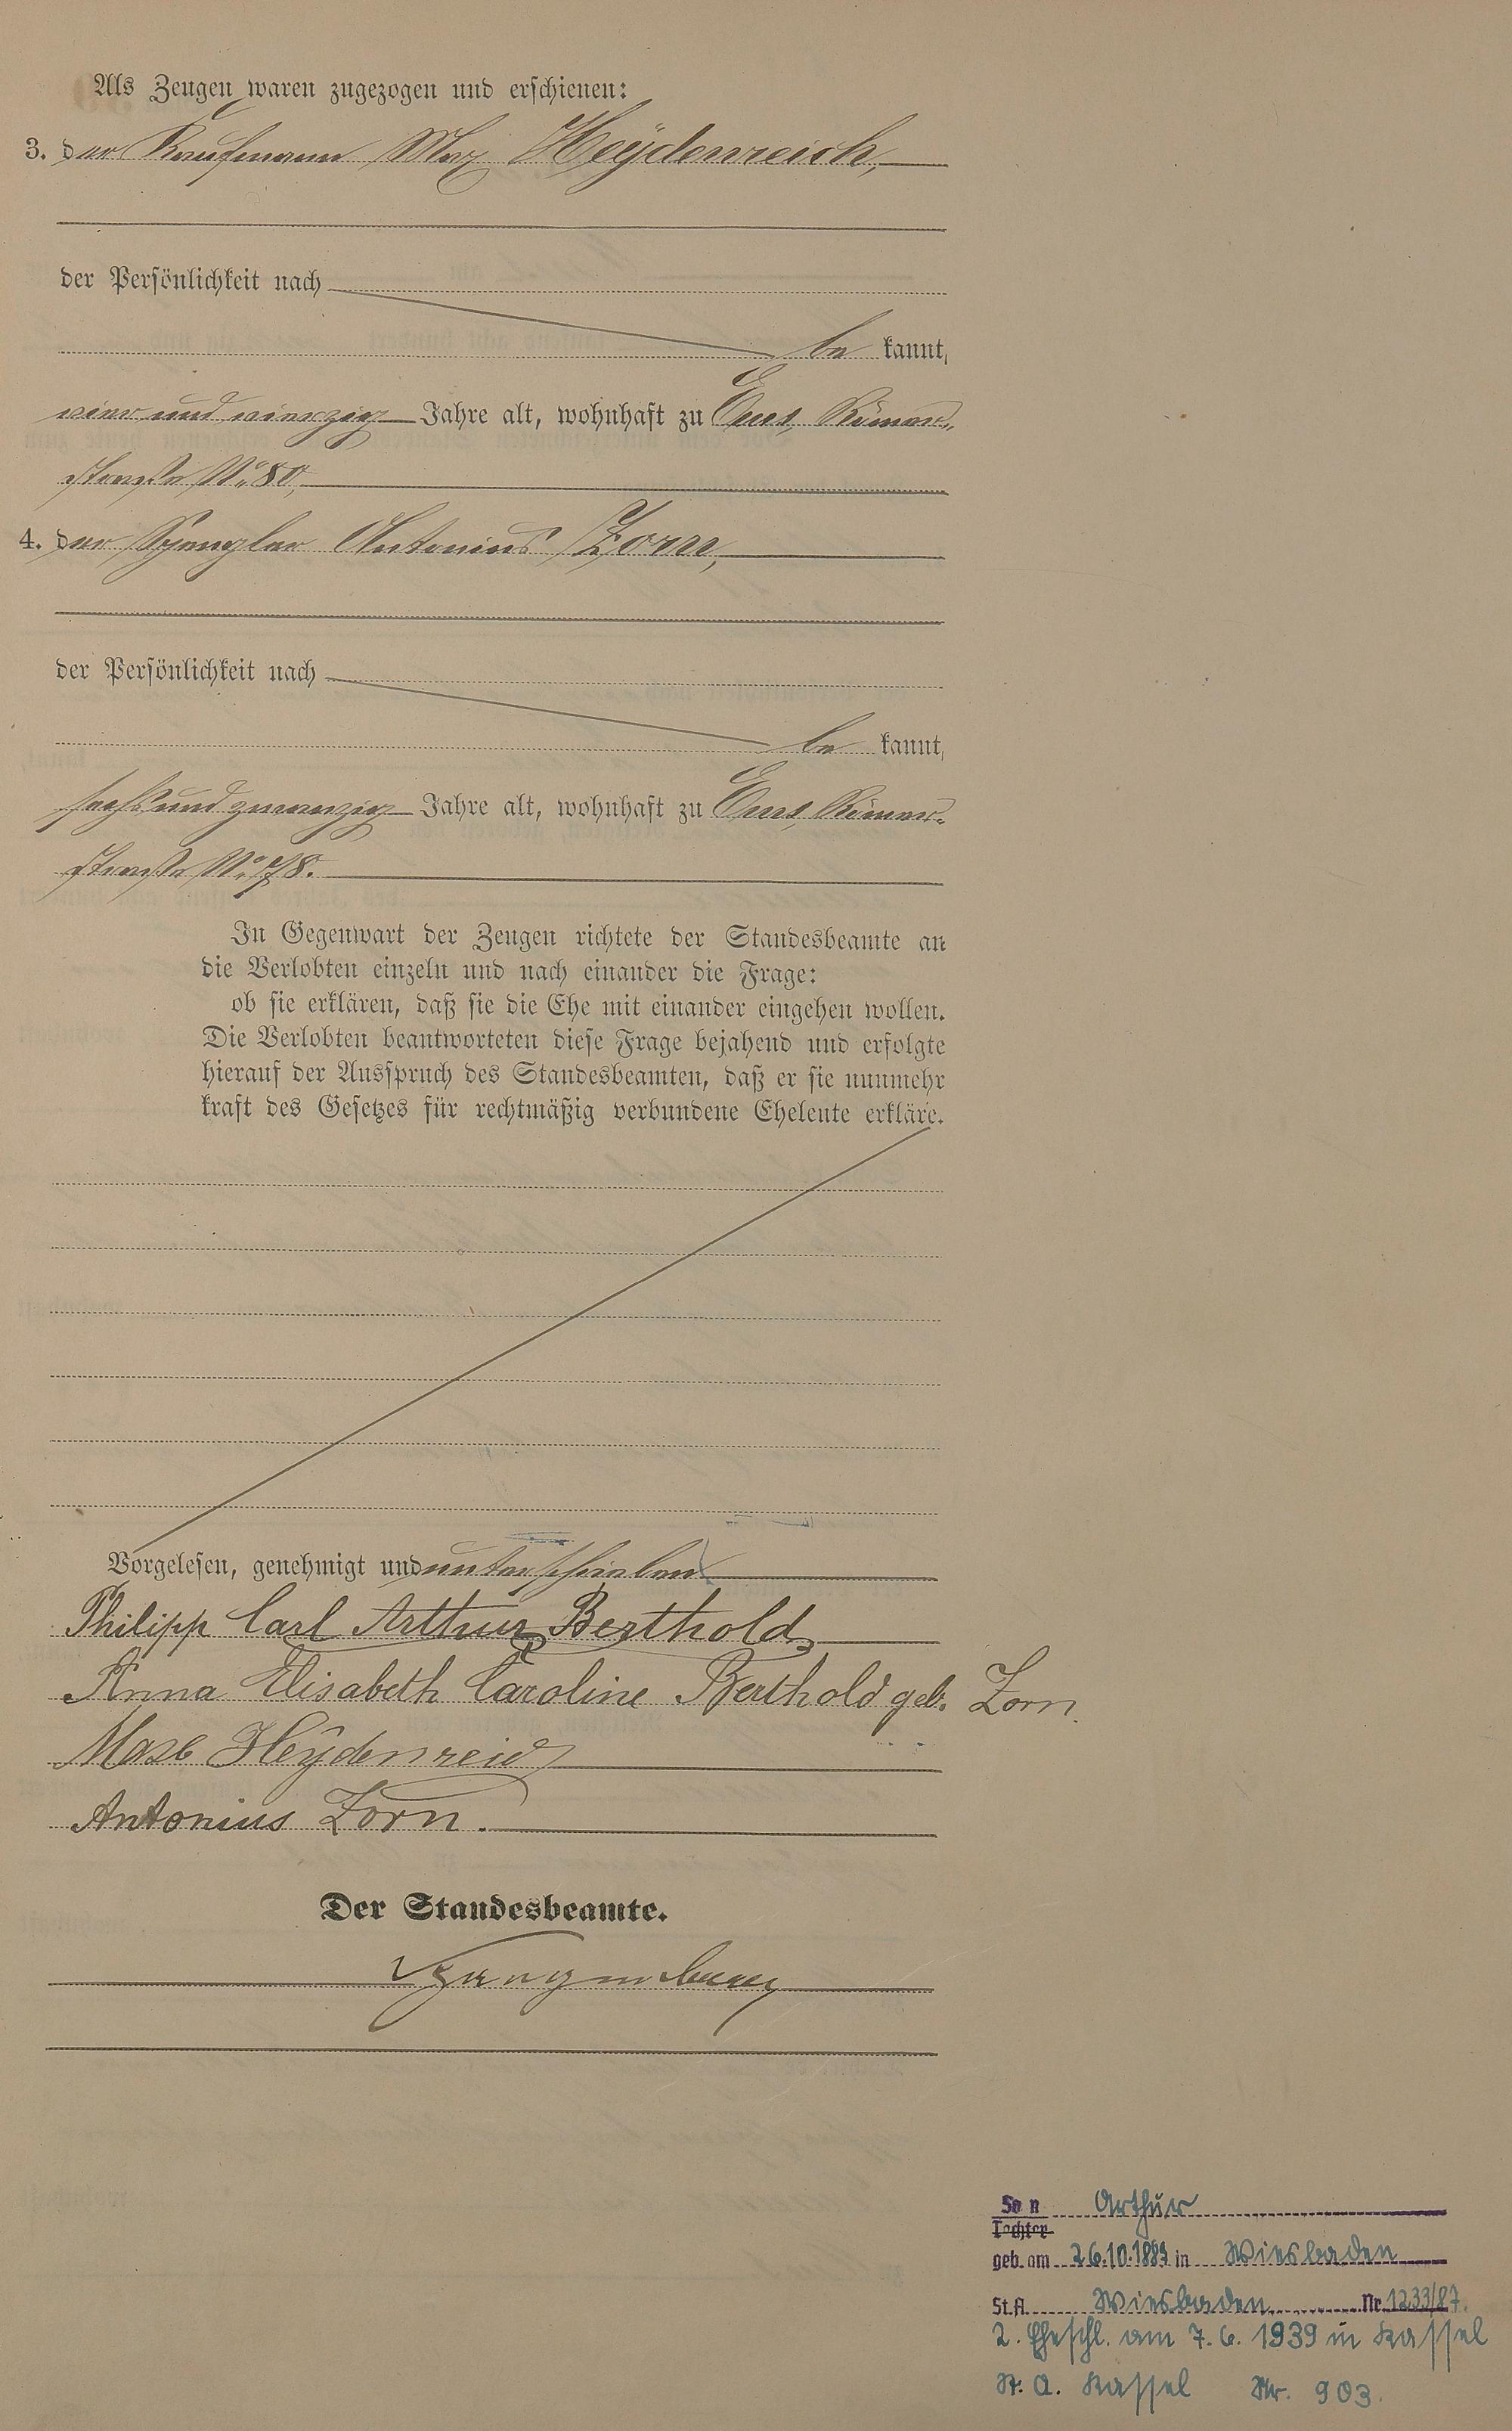 Als Zeugen waren zugezogen und erschienen:
3. der Kaufmann Max Heÿdenreich,
der Persönlichkeit nach
be kannt,
vier und vierzig Jahre alt, wohnhaft zu Ems, Römer-
straße No. 80,
4. der Spengler Antonius Zorn,
der Persönlichkeit nach
be kannt,
sechs und zwanzig Jahre alt, wohnhaft zu Ems, Römer-
straße No. 78.
In Gegenwart der Zeugen richtete der Standesbeamte an
die Verlobten einzeln und nach einander die Frage:
ob sie erklären, daß sie die Ehe mit einander eingehen wollen.
Die Verlobten beantworteten diese Frage bejahend und erfolgte
hierauf der Ausspruch des Standesbeamten, daß er sie nunmehr
kraft des Gesetzes für rechtmäßig verbundene Eheleute erkläre.
Vorgelesen, genehmigt und unterschrieben
Philipp Carl Arthur Berthold
Anna Elisabeth Caroline Berthold geb. Zorn.
Max Heÿdenreich
Antonius Zorn.
Der Standesbeamte.
Sohn Arthur
Tochter
geb. am 26.10.1887 in Wiesbaden
St.A. Wiesbaden Nr. 1233/87.
2. Eheschl. am 7.6.1939 in Kassel
St. A. Kassel Nr. 903.